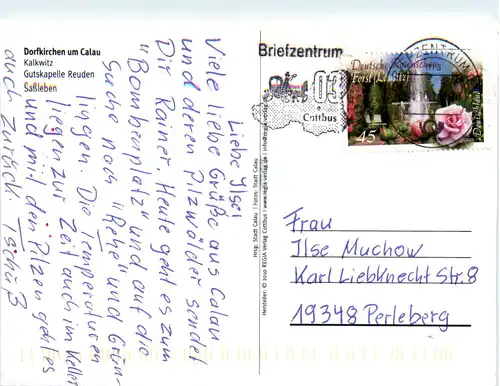 Dorfkirchen um Calau
Kalkwitz
Gutskapelle Reuden
Saßleben
Liebe Ilse,
Viele liebe Grüße aus Calau
und deren Pilzwälder sendet
Dir Rainer. Heute geht es zum
"Bombenplatz" und auf die
Suche nach "Rehe" und Grün-
lingen. Die Temperaturen
liegen zur Zeit auch im Keller
und mit den Pilzen geht es
auch zurück. Tschüß
Hrsg: Stadt Calau | Fotos: Stadt Calau
Hersteller: © 2010 REGIA Verlag Cottbus | www.regia-verlag.de
Briefzentrum
03
Cottbus
ZENTRUM
Deutsche
Forst (Lausitz)
45
Deutschland
Frau
Ilse Muchow
Karl Liebknecht Str. 8
19348 Perleberg